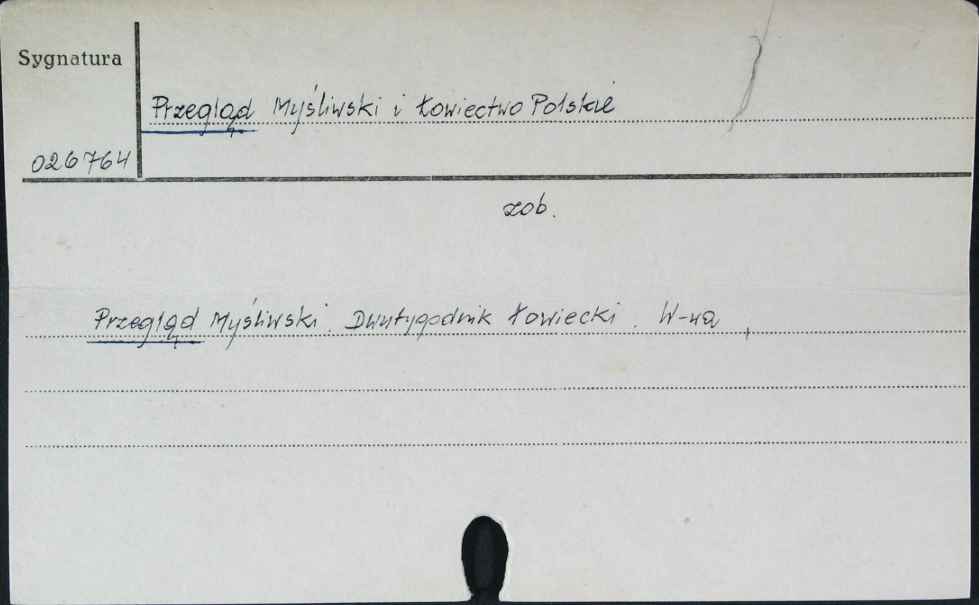 Sygnatura
Przegląd Myśliwski i Łowiectwo Polskie
026764
zob.
Przegląd Myśliwski. Dwutygodnik Łowiecki. W-wa,